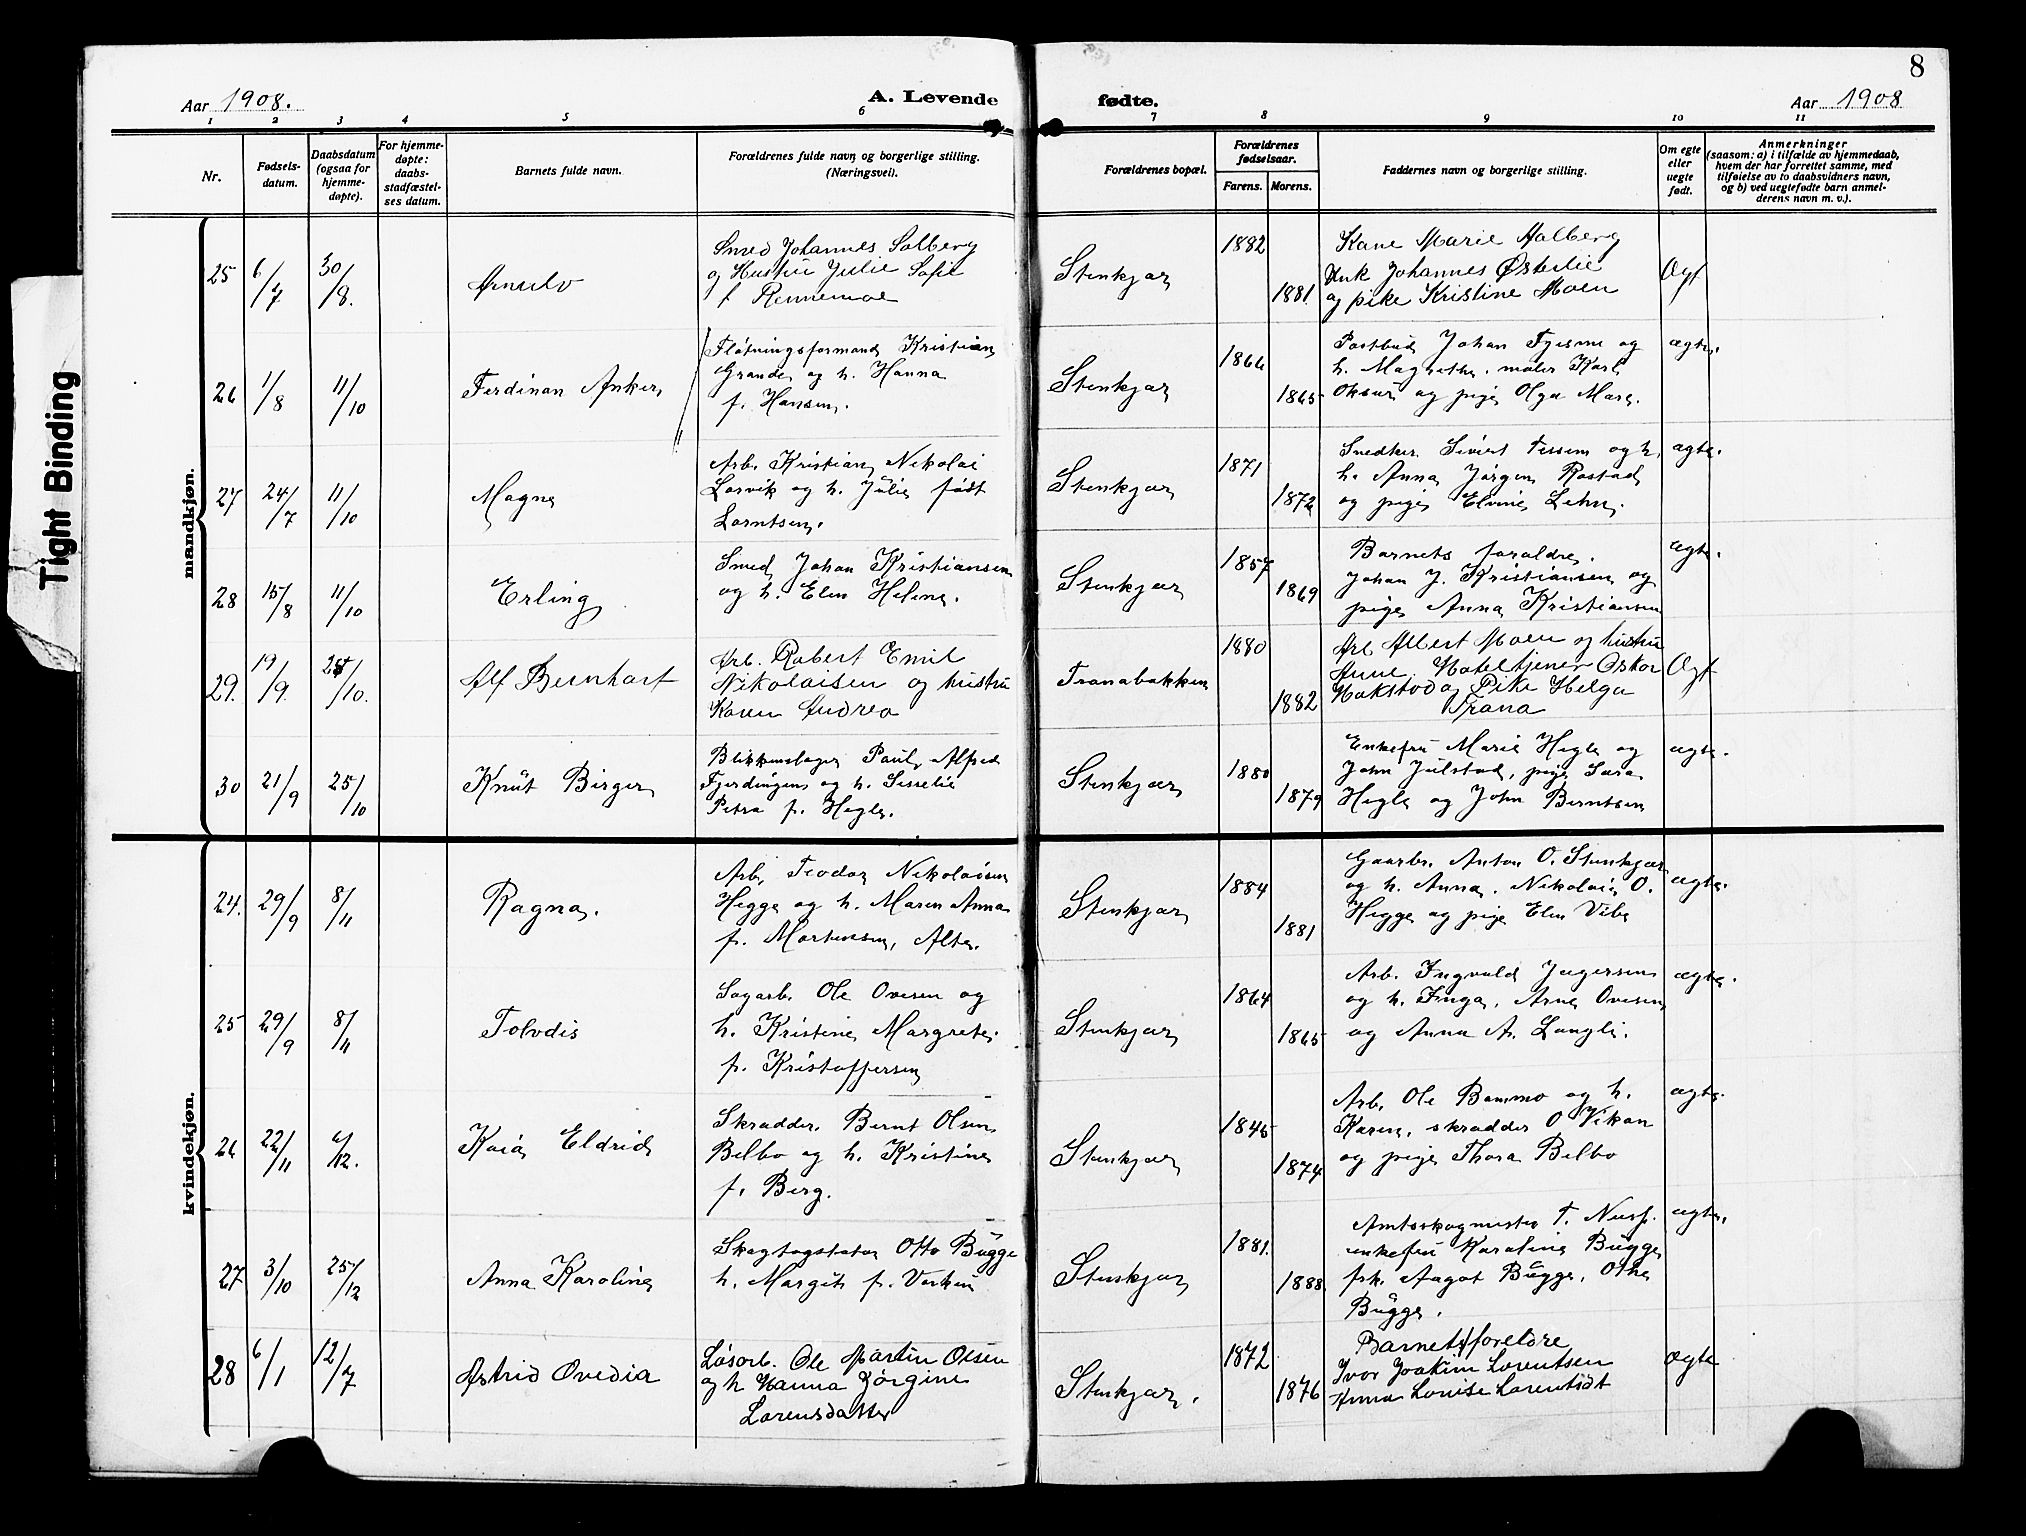 8
Aar 1908.
A. Levende
fødte.
Aar 1908
1 2 3 4 5 6 7 8 9 10 11
Nr.
Fødsels-
datum.
Daabsdatum
(ogsaa for
hjemme-
døpte).
For hjemme-
døpte:
daabs-
stadfæstel-
ses datum.
Barnets fulde navn.
Forældrenes fulde navn og borgerlige stilling.
(Næringsvei).
Forældrenes bopæl.
Forældrenes
fødselsaar.
Farens. Morens.
Faddernes navn og borgerlige stilling.
Om egte
eller
uegte
født.
Anmerkninger
(saasom: a) i tilfælde av hjemmedaab,
hvem der har forrettet samme, med
tilføielse av to daabsvidners navn,
og b) ved uegtefødte barn anmel-
derens navn m. v.).
Tight Binding
mandkjøn.
25 6/7 30/8. Arnulv
Smed Johannes Solberg
og Hustru Julie Sofie
f Rennemoe
Stenkjær
1882
1881
Kone Marie Aalberg
Ynk Johannes Østerlie
og pike Kristine Moen
Ægt
26 1/8 11/10 Ferdinan Anker
Fløtningsformand Kristian
Grande og h. Hanna
f. Hansen.
Stenkjær
1866
1865
Postbud Johan Fjesme og
h. Magrethe, maler Karl
og pige Olga Mare.
ægte.
27 24/7 11/10 Magne
Arb. Kristian Nikolai
Lorvik og h. Julie født
Lorntsen.
Stenkjær
1871
1872
Snedker Sivert Tessem og h.
h. Anna Jørgen Rostad
og pige Elvine Lehn.
ægte.
28 15/8 11/10 Erling
Smed Johan Kristiansen
og h. Elen Helene.
Stenkjær
1857
1869
Barnets forældre.
Johan J. Kristiansen og
pige Anna Kristiansen
ægte.
29. 19/9. 25/10. Alf Bernhart
Arb. Robert Emil
Nikolaisen og hustru
Karen Andrea
Tranabakken
1880
1882
Arb Albert Moen og hustru
Anne, Hoteltjener Oskar
Hakstad og Pike Helga
Trana
Ægt
30 21/9 25/10 Knut Birger
Blikkenslager Paul Alfred
Fjerdingen og h. Sisselie
Petra f. Hegle.
Stenkjær
1880
1879
Enkefru Marie Hegle og
John Julstad, pige Sara
Hegle og John Berntsen
ægte.
kvindekjøn.
24. 29/9 8/11 Ragna.
Arb. Teodor Nikolaisen
Hegge og h. Maren Anna
f. Mortensen, Alten.
Stenkjær
1884
1881
Gaarbr. Anton O. Stenkjær
og h. Anna, Nikolai O.
Hegge og pige Elen Vibe
ægte.
25 29/9 8/11 Tolvdis
Sagarb. Ole Ovesen og
h. Kristine Margrete
f. Kristoffersen
Stenkjær
1864
1865
Arb. Ingvald Jegersen
og h. Inga, Arne Ovesen,
og Anna A. Langli.
ægte.
26 22/11 6/12. Kaia Eldrid
Skrædder Bernt Olsen
Belbo og h. Kristine
f. Berg.
Stenkjær
1845
1874
Arb. Ole Bommo og h.
Karen, skrædder O Vikan
og pige Thora Belbo
ægte.
27 3/10 25/12 Anna Karoline
Skogtagstator Otto Bugge
h. Margit f. Verkin
Stenkjær
1881.
1888.
Amtsskogmester T. Nusf.
enkefru Karoline Bugge
frk. Aagot Bugge, Othe
Bugge.
ægte.
28 6/1 12/7 Astrid Ovedia
Løsarb. Ole Martin Olsen
og h Hanna Jørgine
Lorensdatter
Stenkjær.
1872
1876
Barnets foreldre
Ivor Joakim Lorentsen
Anna Louise Lorentsdt
Ægte